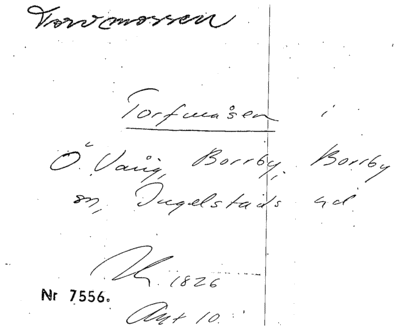 Torvmossen
Torfmåsen i
Ö. Vång, Borrby, Borrby
sn, Ingelstads hd
1826
Nr 7556.
Akt 10.